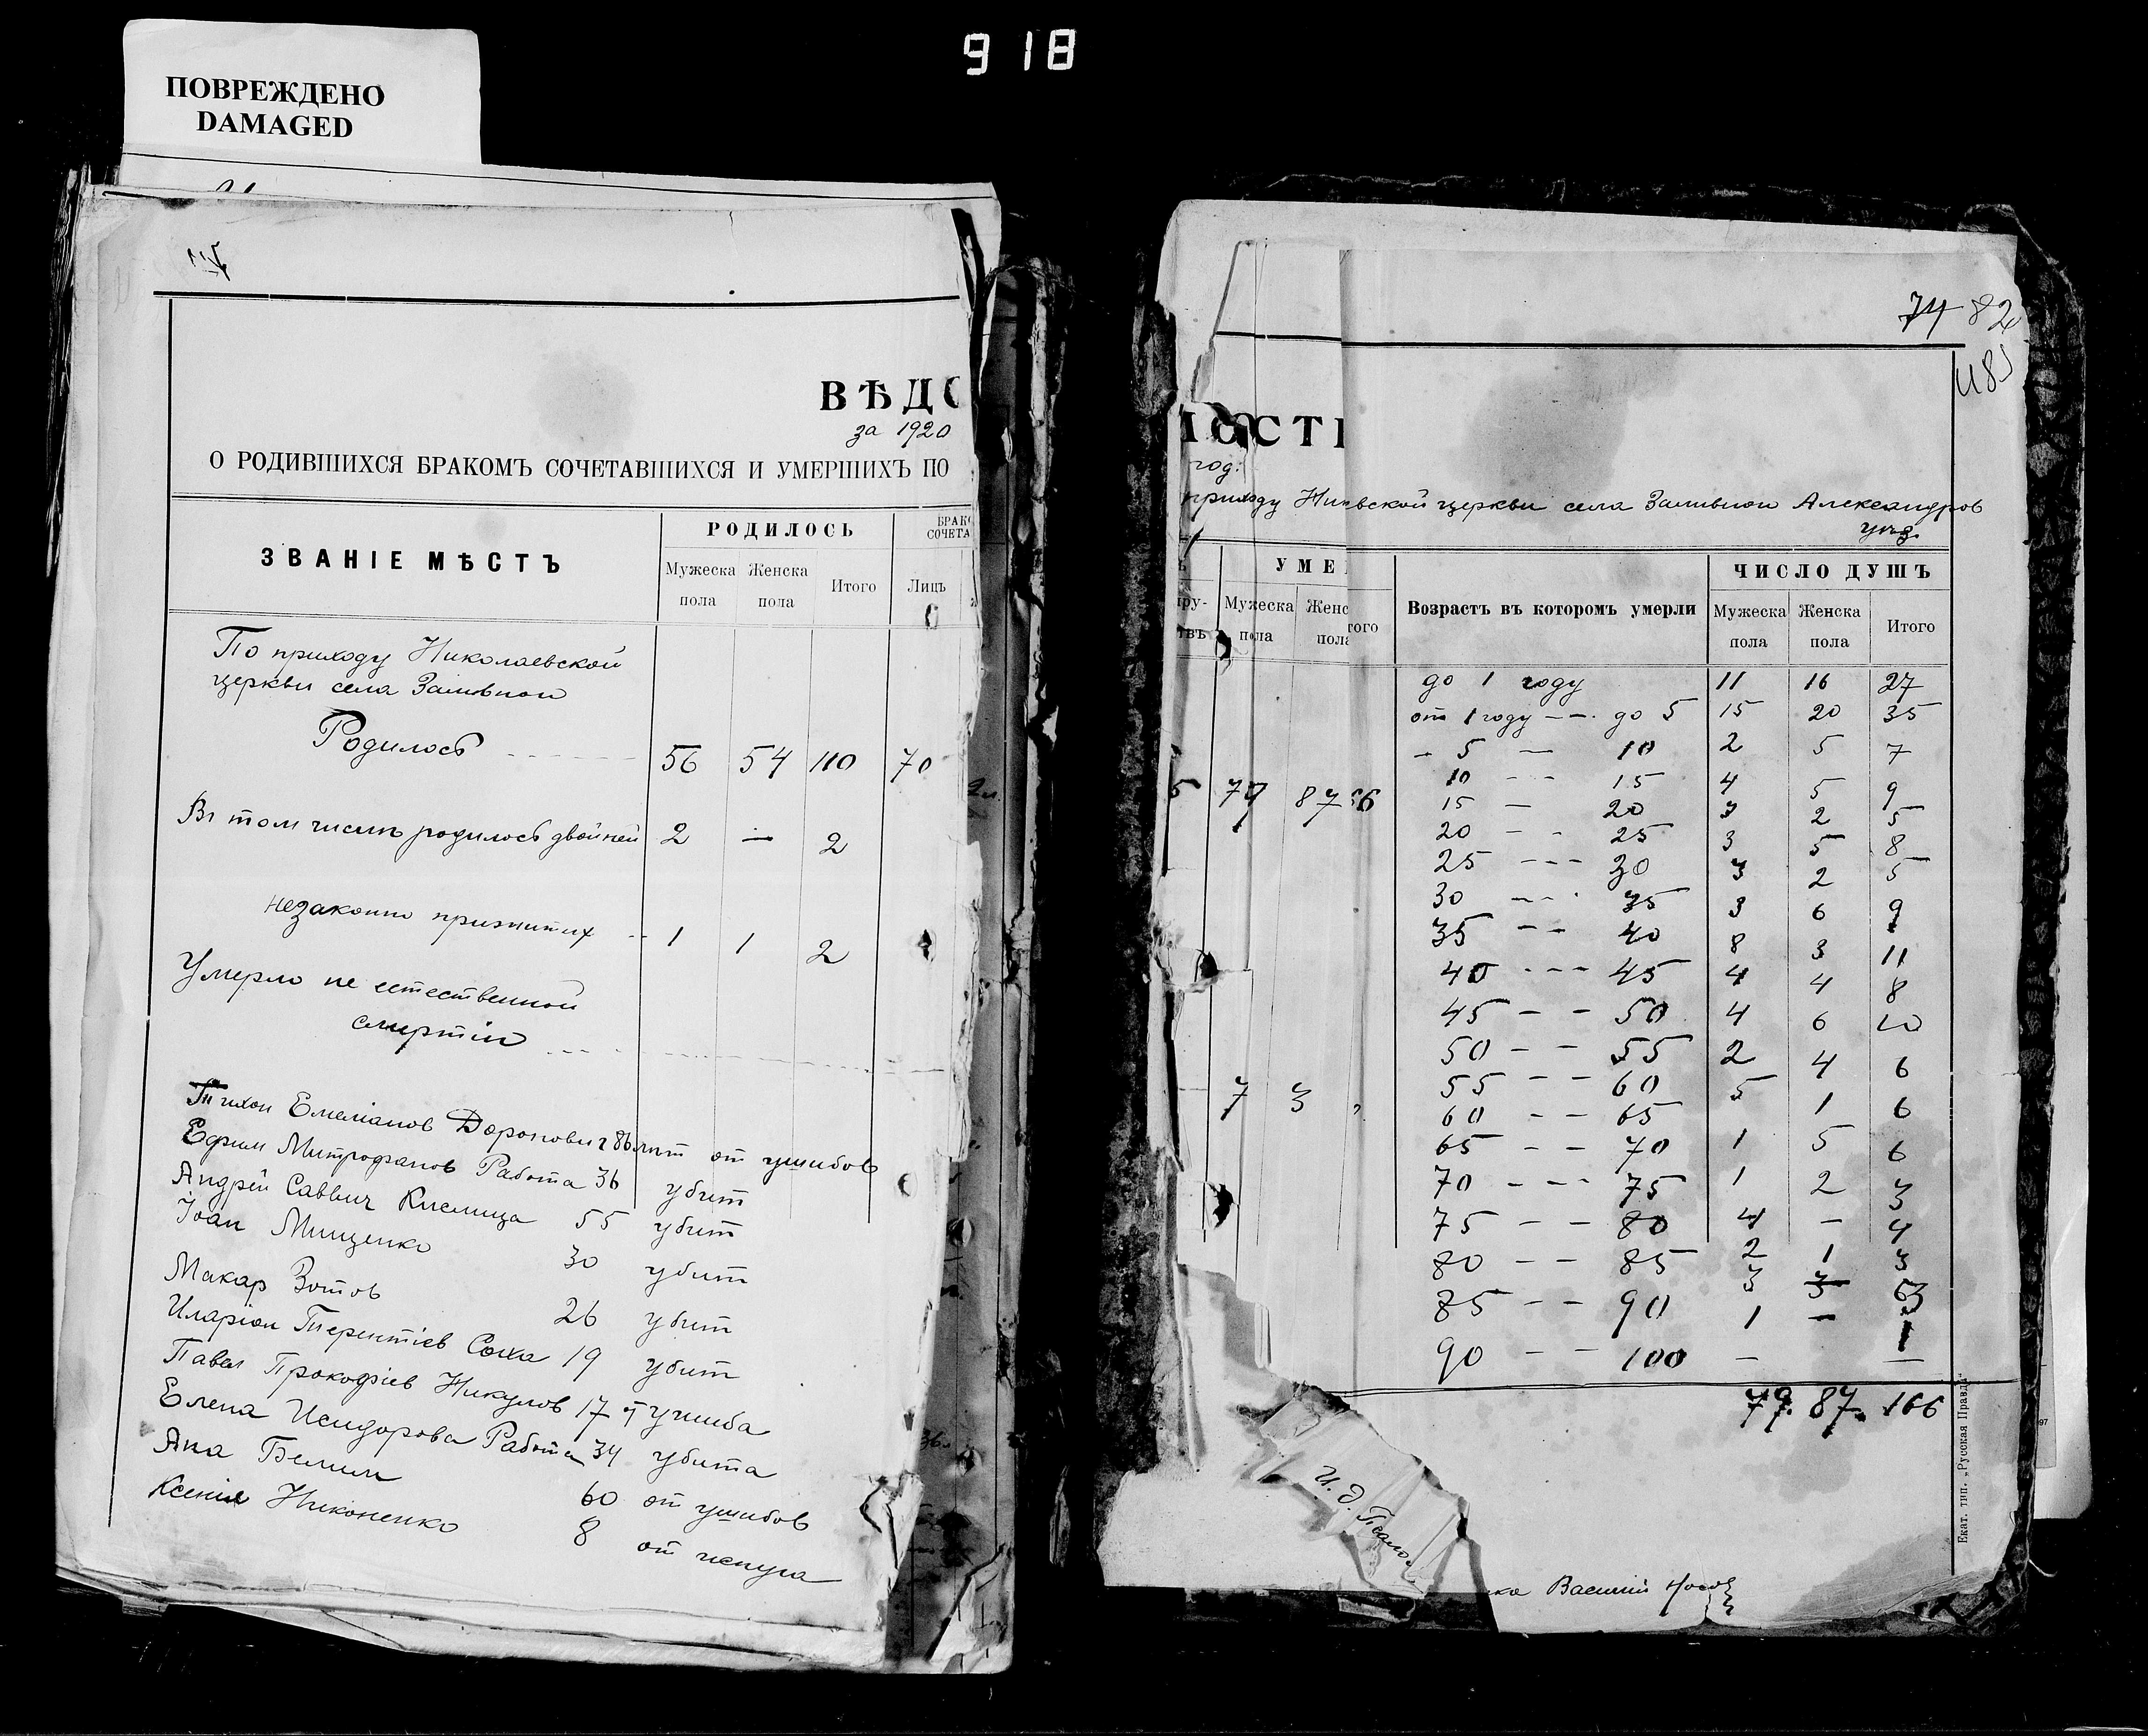 918
ПОВРЕЖДЕНО
DAMAGED
ВѢДО
за 1920
О РОДИВШИХСЯ БРАКОМЪ СОЧЕТАВШИХСЯ И УМЕРШИХЪ ПО
ЗВАНІЕ МѢСТЪ
РОДИЛОСЬ
БРАКО
СОЧЕТА
Мужеска пола
Женска пола
Итого
Лицъ
По приходу Николаевской
церкви села Заливной
Родилось 56 54 110 70
В том числѣ родилось двойней 2 — 2
незаконно прижитих 1 1 2
Умерло не естественной
смертію
Тихон Емеліанов Доронович 86 лѣт от ушибов
Ефрим Митрофанов Работа 36 убит
Андрей Саввич Кислица 55 убит
Іоан Мищенко 30 убит
Макар Зотов 26 убит
Иларіон Терентіев Соха 19 убит
Павел Прокофіев Никулов 17 от ушиба
Елена Исидорова Работа 34 убита
Ана 60 от ушибов
Ксенія Никоненко 8 от испуга
74 82
485
МОСТЬ
год.
приходу Никвской церкви села Заливной Александров
уѣз.
УМЕ
Мужеска пола
Женс пола
того
Возрастъ въ которомъ умерли
ЧИСЛО ДУШЪ
Мужеска пола
Женска пола
Итого
5 79 87 66
7 3 "
до 1 году 11 16 27
от 1 году — — до 5 15 20 35
— 5 — 10 2 5 7
10 — — 15 4 5 9
15 — 20 3 2 5
20 — — 25 3 5 8
25 — — — 30 3 2 5
30 — — 35 3 6 9
35 — — 40 8 3 11
40 — — — 45 4 4 8
45 — — 50 4 6 10
50 — — 55 2 4 6
55 — — 60 5 1 6
60 — — 65 1 5 6
65 — — 70 1 2 3
70 — — — 75 4 — 4
75 — — 80 2 1 3
80 — — 85 3 3
85 — — 90 1 — 1
90 — — 100 — —
79. 87. 166
И. д. Псало
ка Василій Носов
Екат. тип. „Русская Правда“